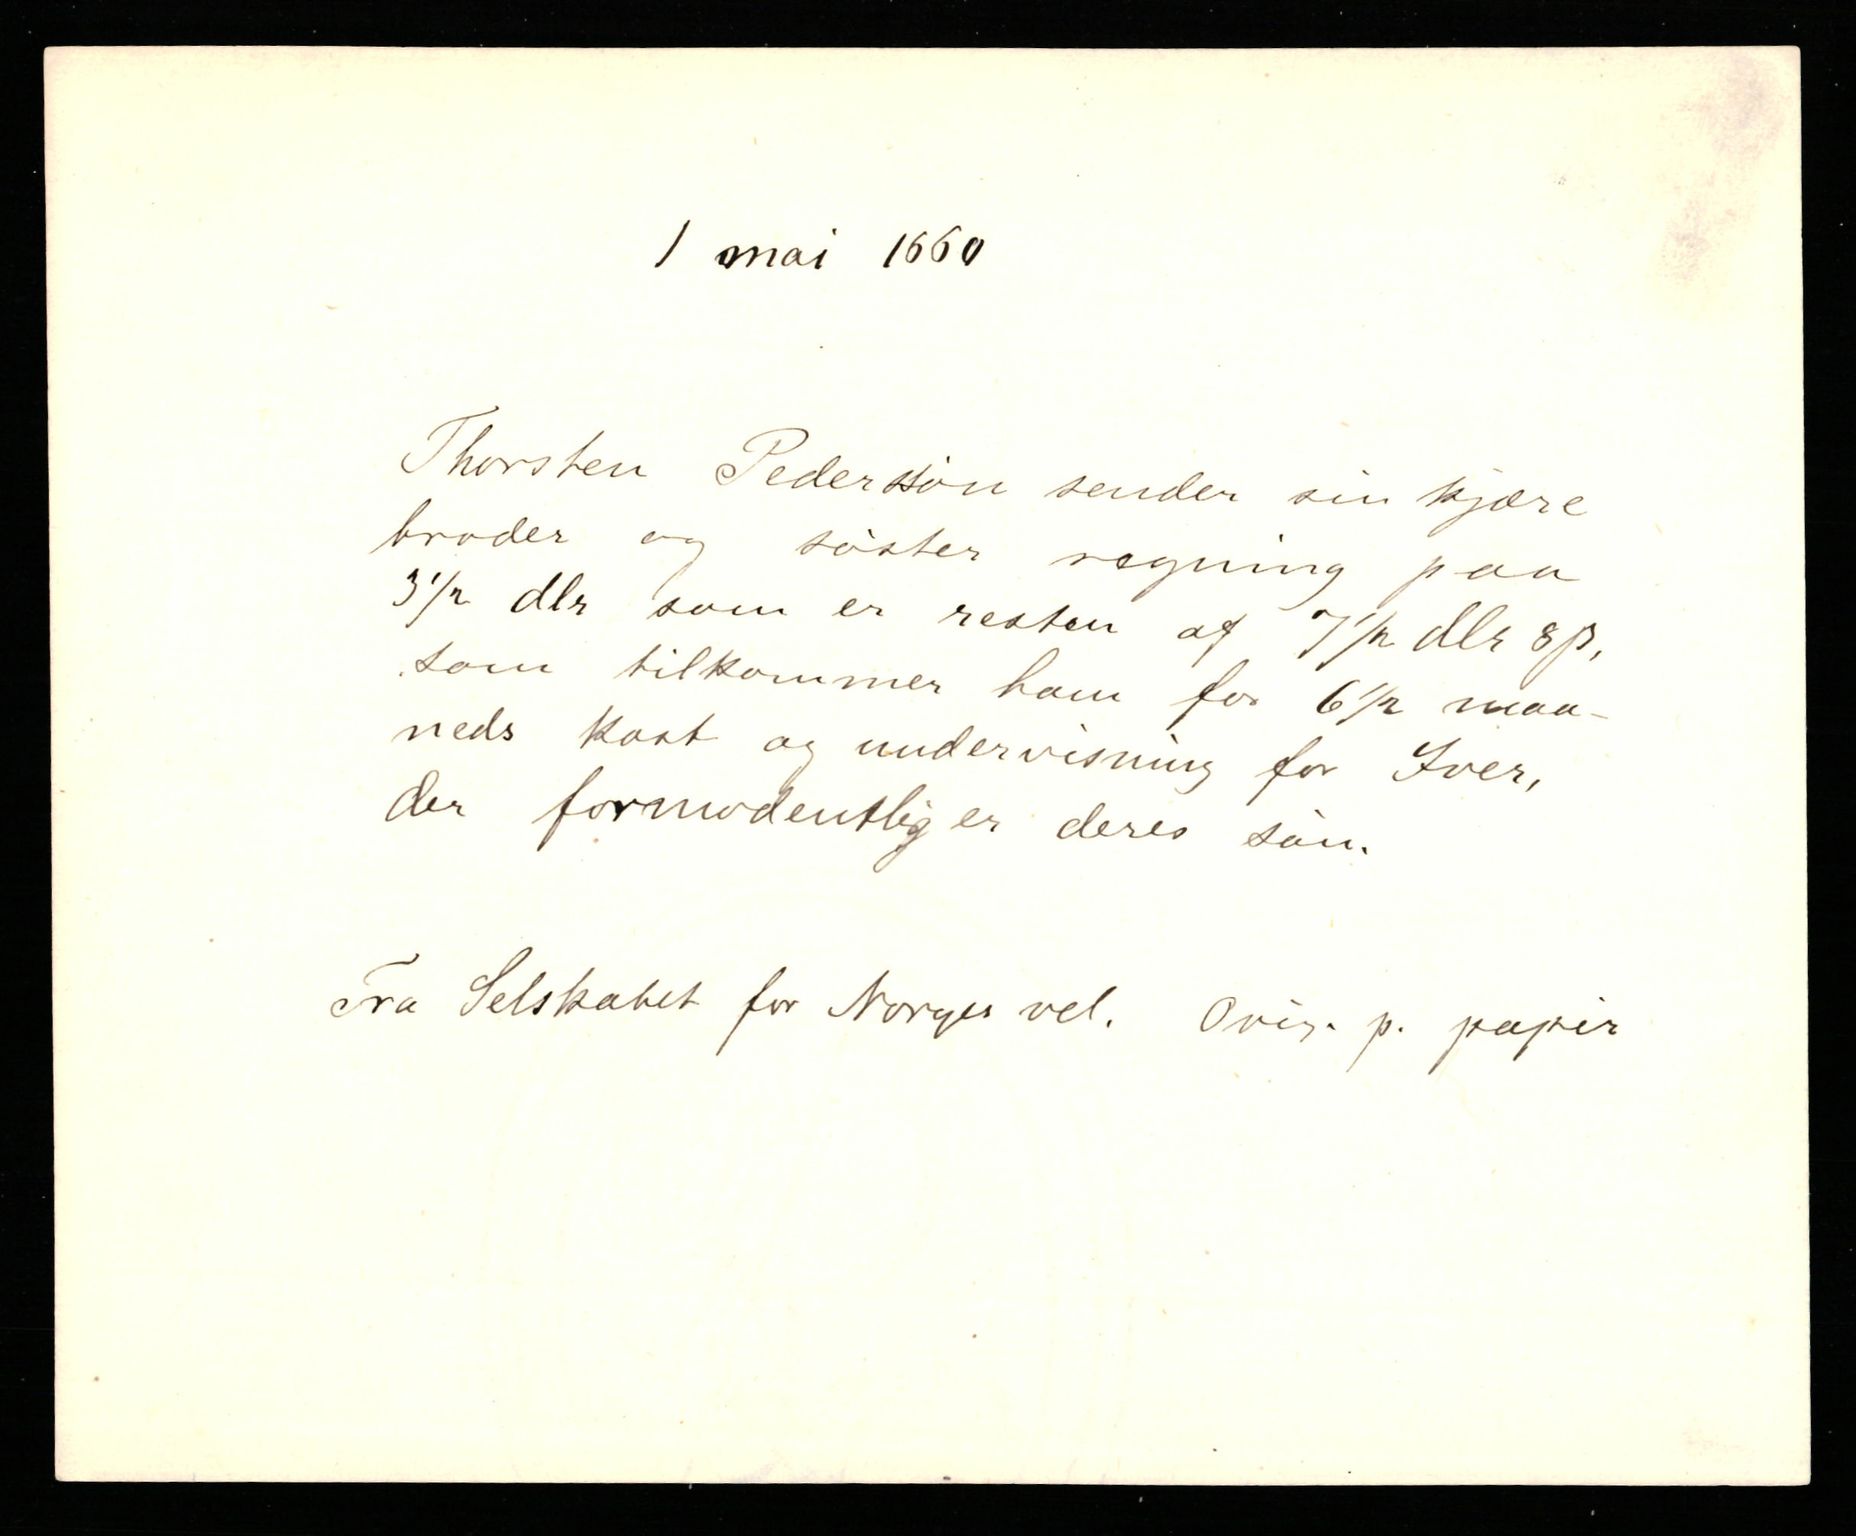 1 mai 1660
Thorsten Pederssøn sender sin kjære
broder og søster regning paa
3 1/2 dlr som er resten af 7 1/2 dlr 8 β,
som tilkommer ham for 6 1/2 maa-
neds kost og undervisning for Iver,
der formodentlig er deres søn.
Fra Selskabet for Norges vel. Orig. p. papir